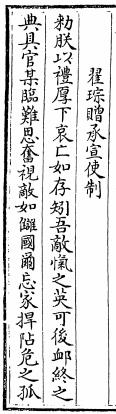 翟琮贈承宣使制
勑朕以禮厚下哀亡如存矧吾敵愾之英可後卹終之
典具官某臨難思奮視敵如讎國爾忘家捍阽危之孤